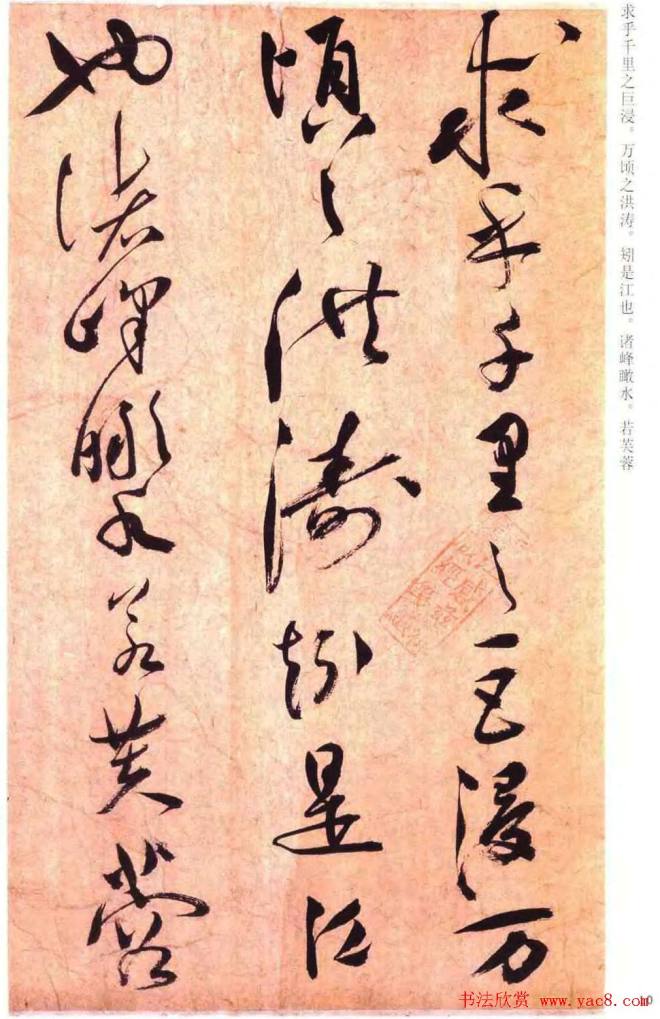 求乎千里之巨浸万
顷之洪涛矧是江
也诸峰瞰水若芙蓉
求乎千里之巨浸。万顷之洪涛。矧是江也。诸峰瞰水。若芙蓉
书法欣赏 www.yac8.com